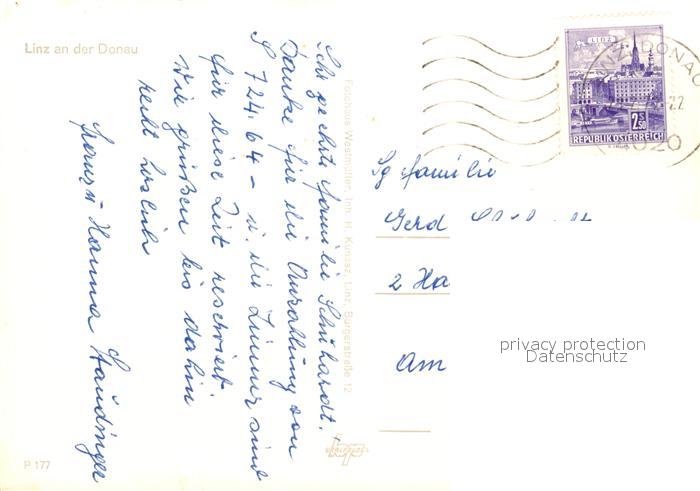 Linz an der Donau
Sehr geehrte Familie Schuhardt.
Danke für die Anzahlung von
S 724.64 – u. die Zimmer sind
für diese Zeit reserviert.
Wir grüßen bis dahin
recht herzlich
Franz u Hanna Staudinger
P 177
Inh. H. Kunasz, Linz, Bürgerstraße 12
LINZ
2.50
REPUBLIK ÖSTERREICH
DONAU
4020
22
Sg Familie
Gerd
2 Ha
Am
privacy protection
Datenschutz